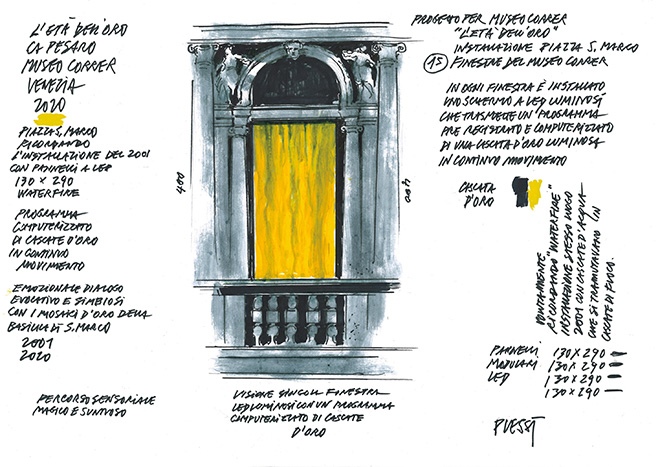 L'ETÀ DELL'ORO
CA PESARO
MUSEO CORRER
VENEZIA
2020
PIAZZA S. MARCO
RICORDANDO
L'INSTALLAZIONE DEL 2001
CON PANNELLI A LED
130 X 290
WATERFIRE
PROGRAMMA
COMPUTERIZZATO
DI CASCATE D'ORO
IN CONTINUO
MOVIMENTO
EMOZIONALE DIALOGO
EVOLUTIVO E SIMBIOSI
CON I MOSAICI D'ORO DELLA
BASILICA DI S. MARCO
2001
2020
PERCORSO SENSORIALE
MAGICO E SUNTUOSO
480
400
VISIONE SINGOLA FINESTRA
LED LUMINOSI CON UN PROGRAMMA
COMPUTERIZZATO DI CASCATE
D'ORO
PROGETTO PER MUSEO CORRER
"L'ETÀ DELL'ORO"
INSTALLAZIONE PIAZZA S. MARCO
15 FINESTRE DEL MUSEO CORRER
IN OGNI FINESTRA È INSTALLATO
UNO SCHERMO A LED LUMINOSI
CHE TRASMETTE UN PROGRAMMA
PRE REGISTRATO E COMPUTERIZZATO
DI UNA CASCATA D'ORO LUMINOSA
IN CONTINUO MOVIMENTO
CASCATA
D'ORO
VOLUTAMENTE
RICORDANDO "WATERFIRE"
INSTALLAZIONE STESSO LUOGO
2001 CON CASCATE D'ACQUA
CHE SI TRAMUTAVANO IN
CASCATE DI FUOCO.
PANNELLI 130 X 290
MODULARI 130 X 290
LED 130 X 290
130 X 290
PLESSI